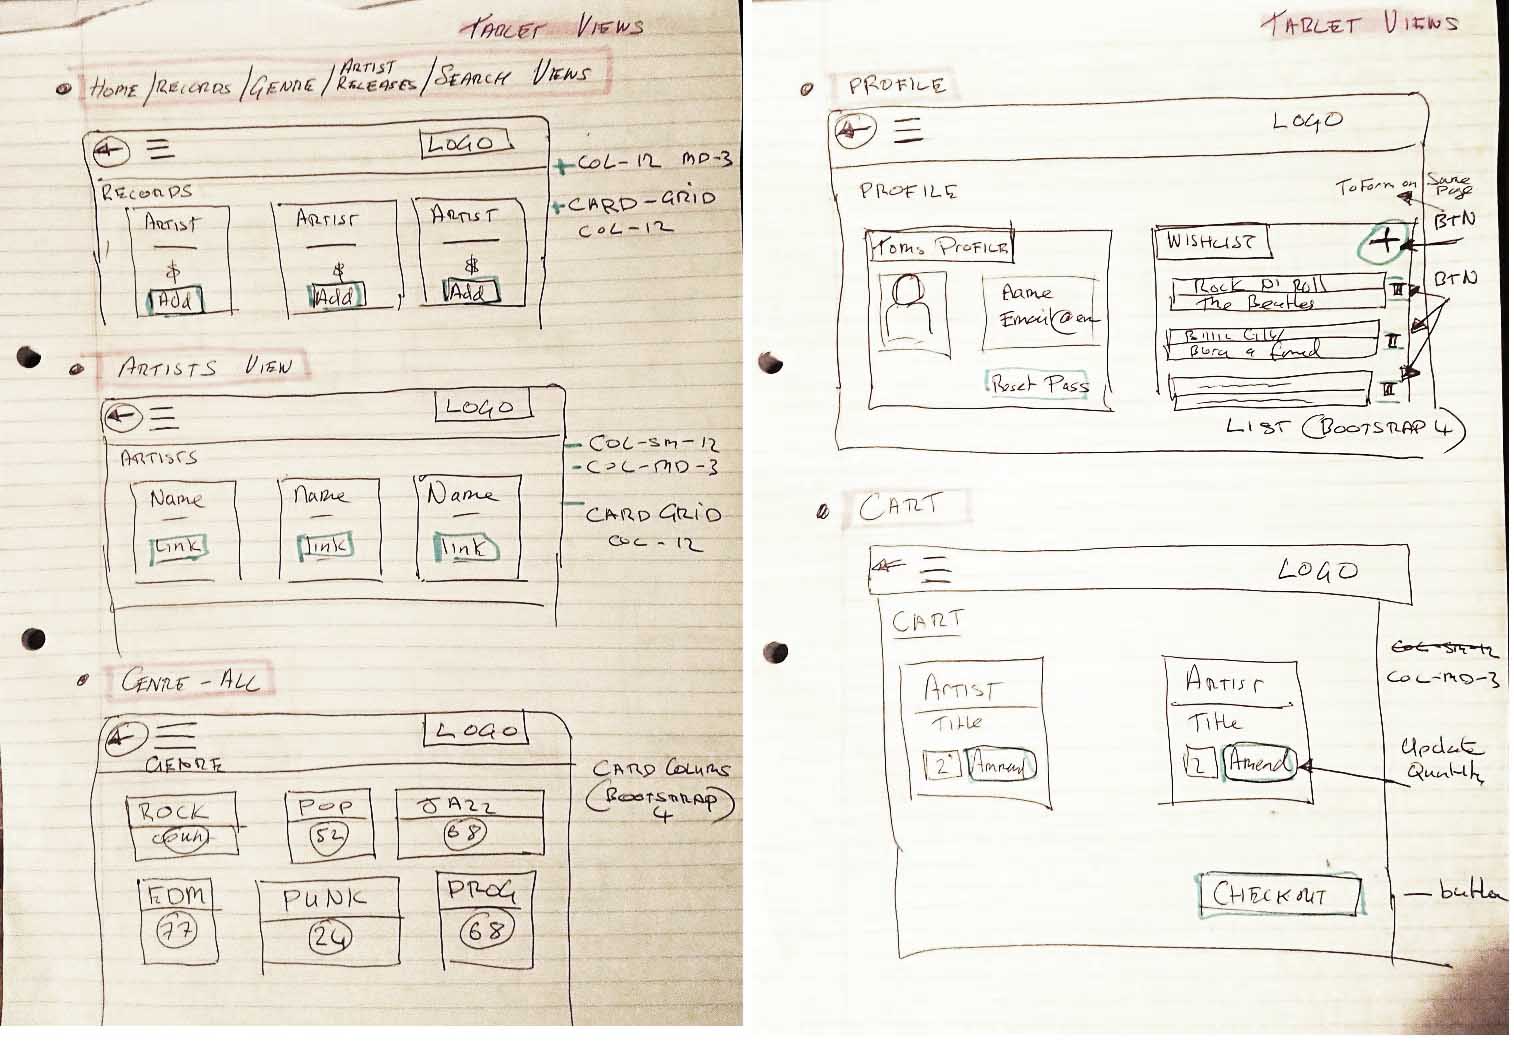 TABLET VIEWS
HOME/RECORDS/GENRE/ARTIST RELEASES/SEARCH VIEWS
LOGO
COL-12 MD-3
RECORDS
CARD-GRID
COL-12
ARTIST ARTIST ARTIST
$ $ $
Add Add Add
ARTISTS VIEW
LOGO
COL-SM-12
COL-MD-3
ARTISTS
Name Name Name
CARD GRID
COL-12
Link link link
GENRE-ALL
LOGO
GENRE
CARD COLUMS
(BOOTSTRAP)
4
ROCK POP JAZZ
Count 52 68
EDM PUNK PROG
77 24 68
TABLET VIEWS
PROFILE
LOGO
PROFILE
To Form on Same Page
BTN
Toms PROFILE
WISHLIST
+
BTN
Rock N' Roll
The Beatles
Name
Email@em
Reset Pass
LIST (BOOTSTRAP 4)
CART
LOGO
CART
COL-SM-12
COL-MD-3
ARTIST ARTIST
Title Title
2 Amend 2 Amend
Update
Quantity
CHECKOUT
button